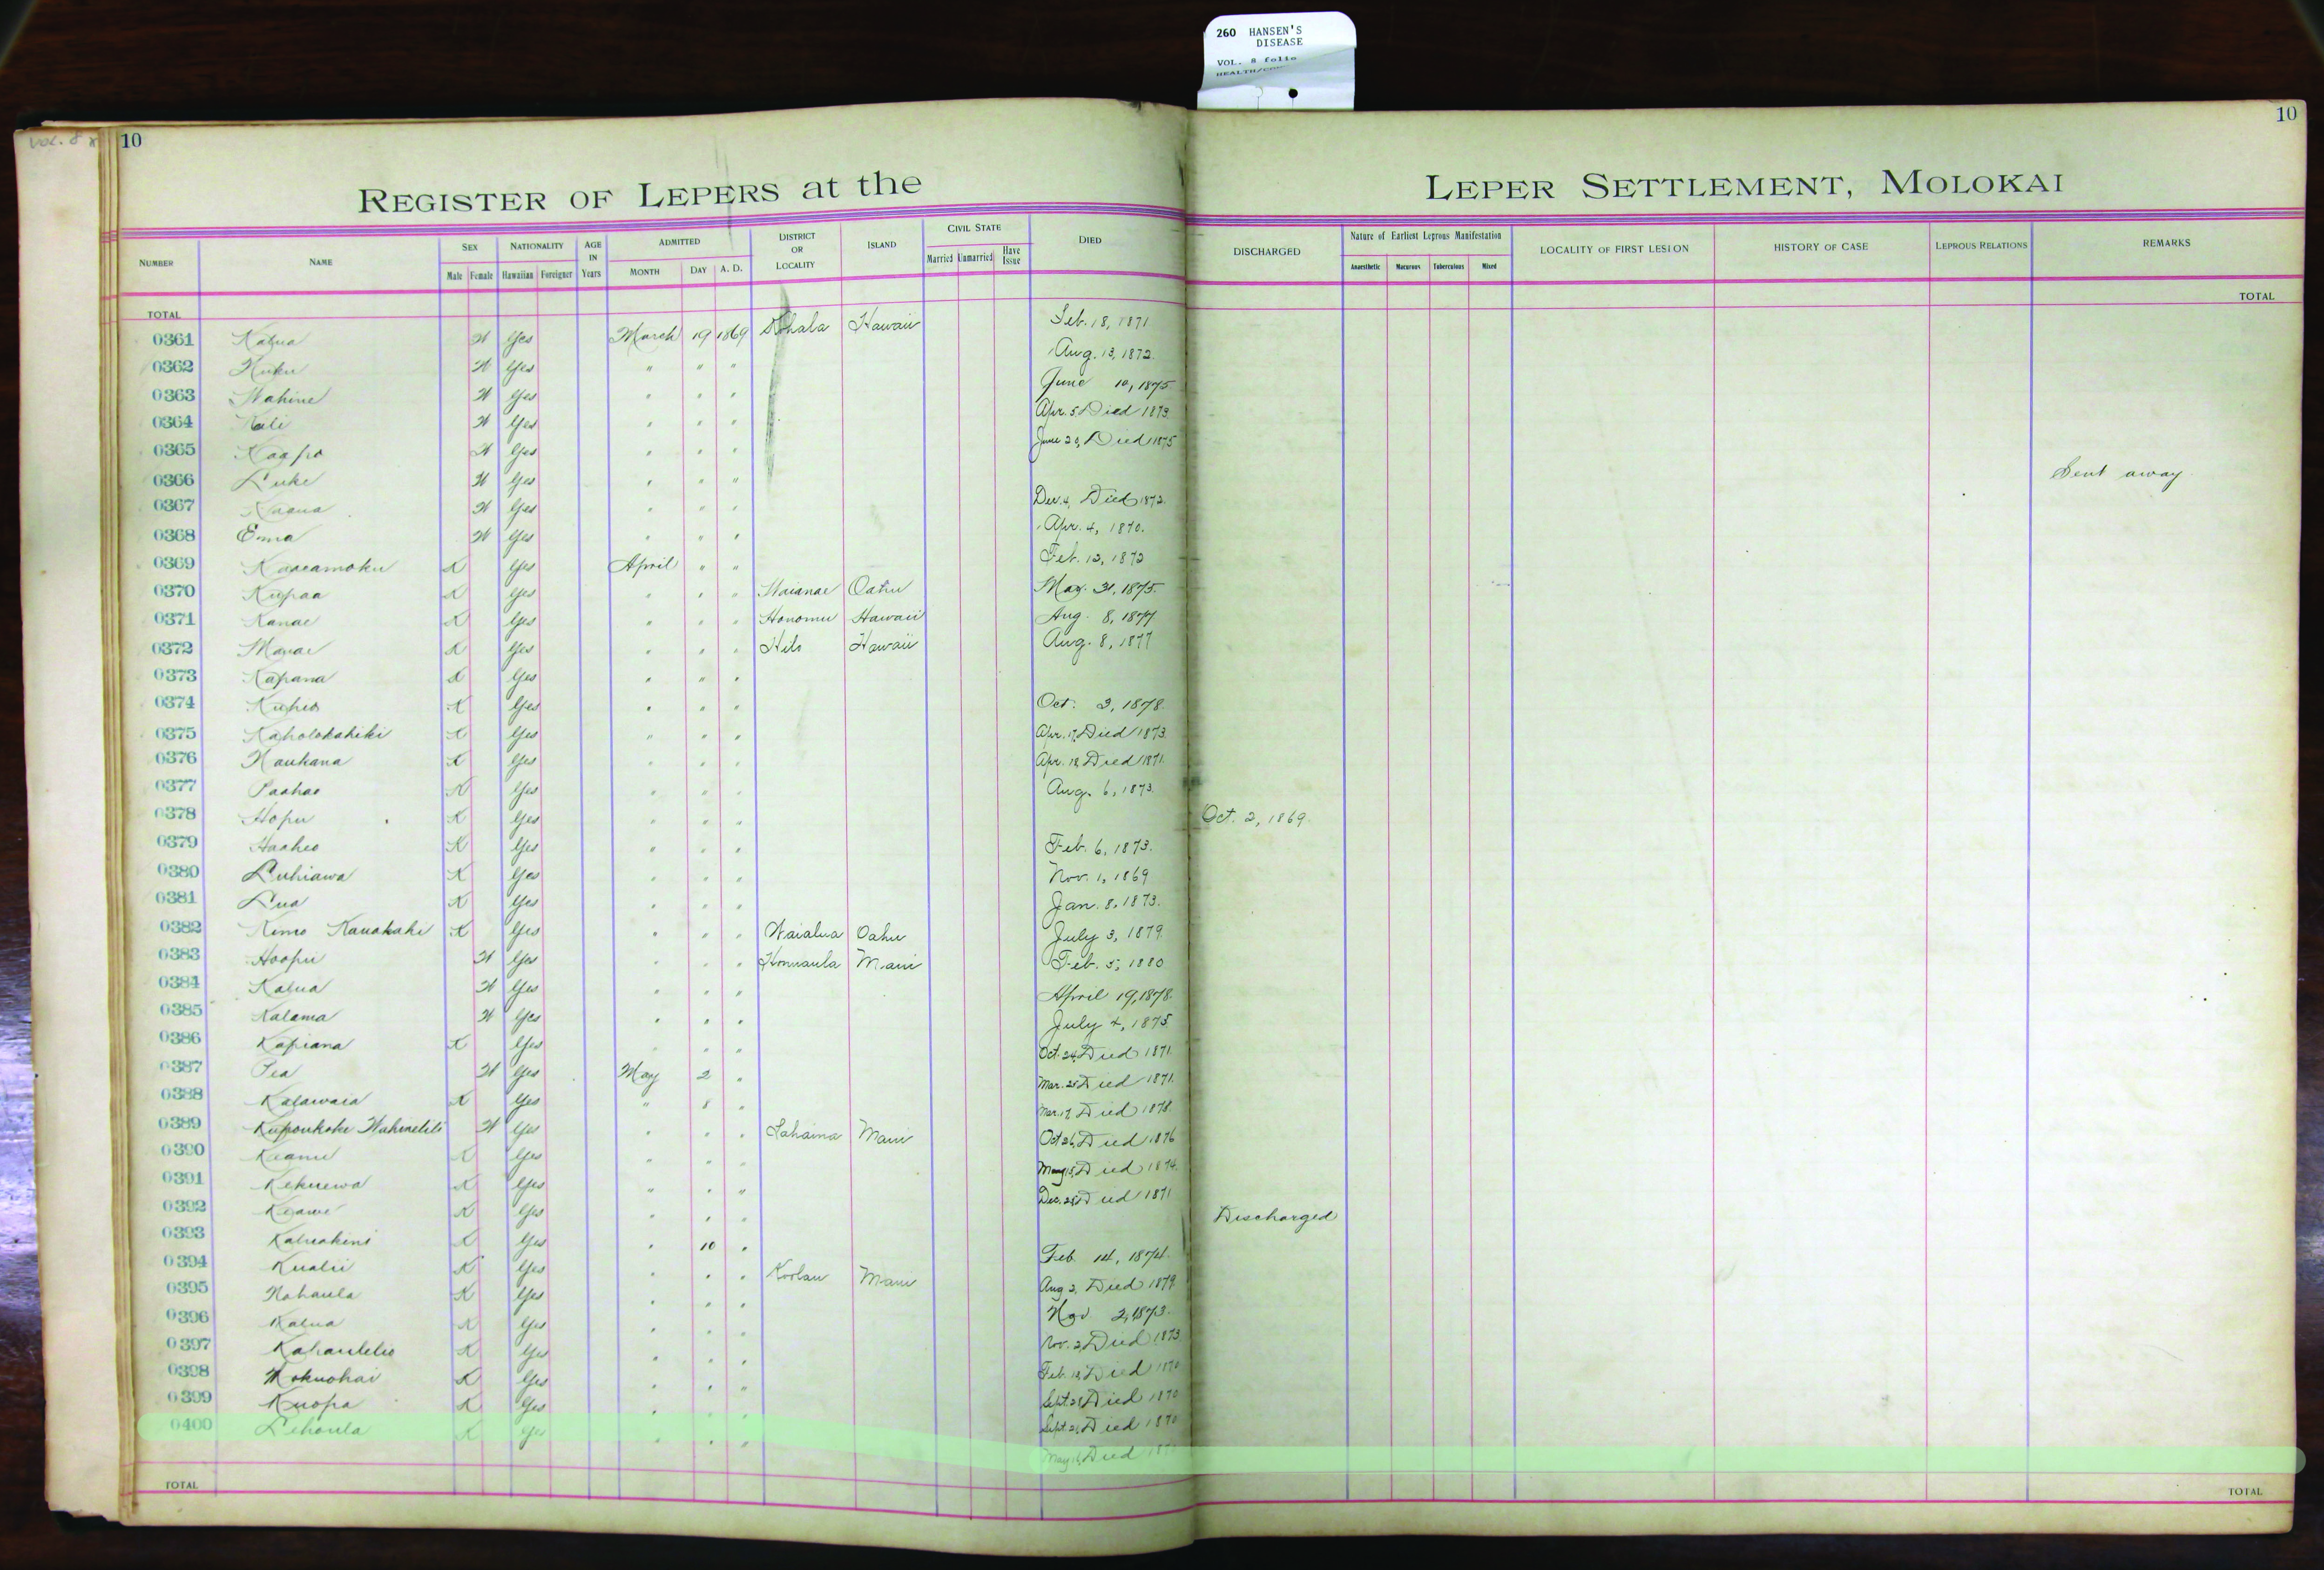 260 HANSEN'S
DISEASE
VOL. 8 folio
VOL. 8
10
10
REGISTER OF LEPERS at the LEPER SETTLEMENT, MOLOKAI
NUMBER NAME SEX NATIONALITY AGE IN Years ADMITTED DISTRICT OR LOCALITY ISLAND CIVIL STATE DIED DISCHARGED Nature of Earliest Leprous Manifestation LOCALITY OF FIRST LESION HISTORY OF CASE LEPROUS RELATIONS REMARKS
Male Female Hawaiian Foreigner MONTH DAY A. D. Married Unmarried Have Issue Anaesthetic Macurous Tuberculous Mixed
TOTAL TOTAL
0361 Kalua W Yes March 19 1869 Kohala Hawaii Feb. 18, 1871
0362 Kuku W Yes " " " Aug. 13, 1872.
0363 Wahine W Yes " " " June 10, 1875
0364 Kali W Yes " " " Apr. 5 Died 1873.
0365 Kaapo W Yes " " " June 20, Died 1875
0366 Luke W Yes " " " Sent away
0367 W Yes " " " Dec. 4, Died 1872.
0368 Emma W Yes " " " Apr. 4, 1870.
0369 Kaaeamoku K Yes April " " Feb. 12, 1872
0370 Kupaa K Yes " " " Waianae Oahu May. 31, 1875.
0371 Kanae K Yes " " " Honomu Hawaii Aug. 8, 1877
0372 K Yes " " " Hilo Hawaii Aug. 8, 1877
0373 Kapana K Yes " " "
0374 Kuheo K Yes " " " Oct. 3, 1878.
0375 Kaholokahiki K Yes " " " Apr. 17, Died 1873.
0376 Naukana K Yes " " " Apr. 18 Died 1871.
0377 Paahao K Yes " " " Aug. 6, 1873.
0378 Hopu K Yes " " " Oct. 2, 1869.
0379 Haaheo K Yes " " " Feb. 6, 1873.
0380 Luhiawa K Yes " " " Nov. 1, 1869
0381 Lua K Yes " " " Jan. 8, 1873.
0382 Kimo Kauakahi K Yes " " " Waialua Oahu July 3, 1879.
0383 Hoopii W Yes " " " Honuaula Maui Feb. 5, 1880
0384 Kalua W Yes " " " April 19, 1878.
0385 Kalama W Yes " " " July 4, 1875.
0386 Kapiana K Yes " " " Oct. 24, Died 1871.
0387 Pea W Yes May 2 " Mar. 25 Died 1871.
0388 Kalawaia K Yes " 8 " Mar. 17, Died 1878.
0389 Kupoukoke W Yes " " " Lahaina Maui Oct 26, Died 1876
0390 Keanu K Yes " " " May 15, Died 1874.
0391 Kekuewa K Yes " " " Dec. 28 Died 1871
0392 Keawe K Yes " " " Discharged
0393 Kaluakini K Yes " 10 " Feb. 14, 1874.
0394 Kualii K Yes " " " Koolau Maui Aug 2, Died 1879.
0395 Nohaula K Yes " " " Nov 2, 1873.
0396 Kalua K Yes " " " Nov. 2, Died 1873
0397 Kahaulelio K Yes " " " Feb. 18, Died 1870
0398 Mokuohai K Yes " " " Sept. 28 Died 1870
0399 Kuopa K Yes " " " Sept. 21, Died 1870
0400 Lehoula K Yes " " " May 16, Died
TOTAL TOTAL